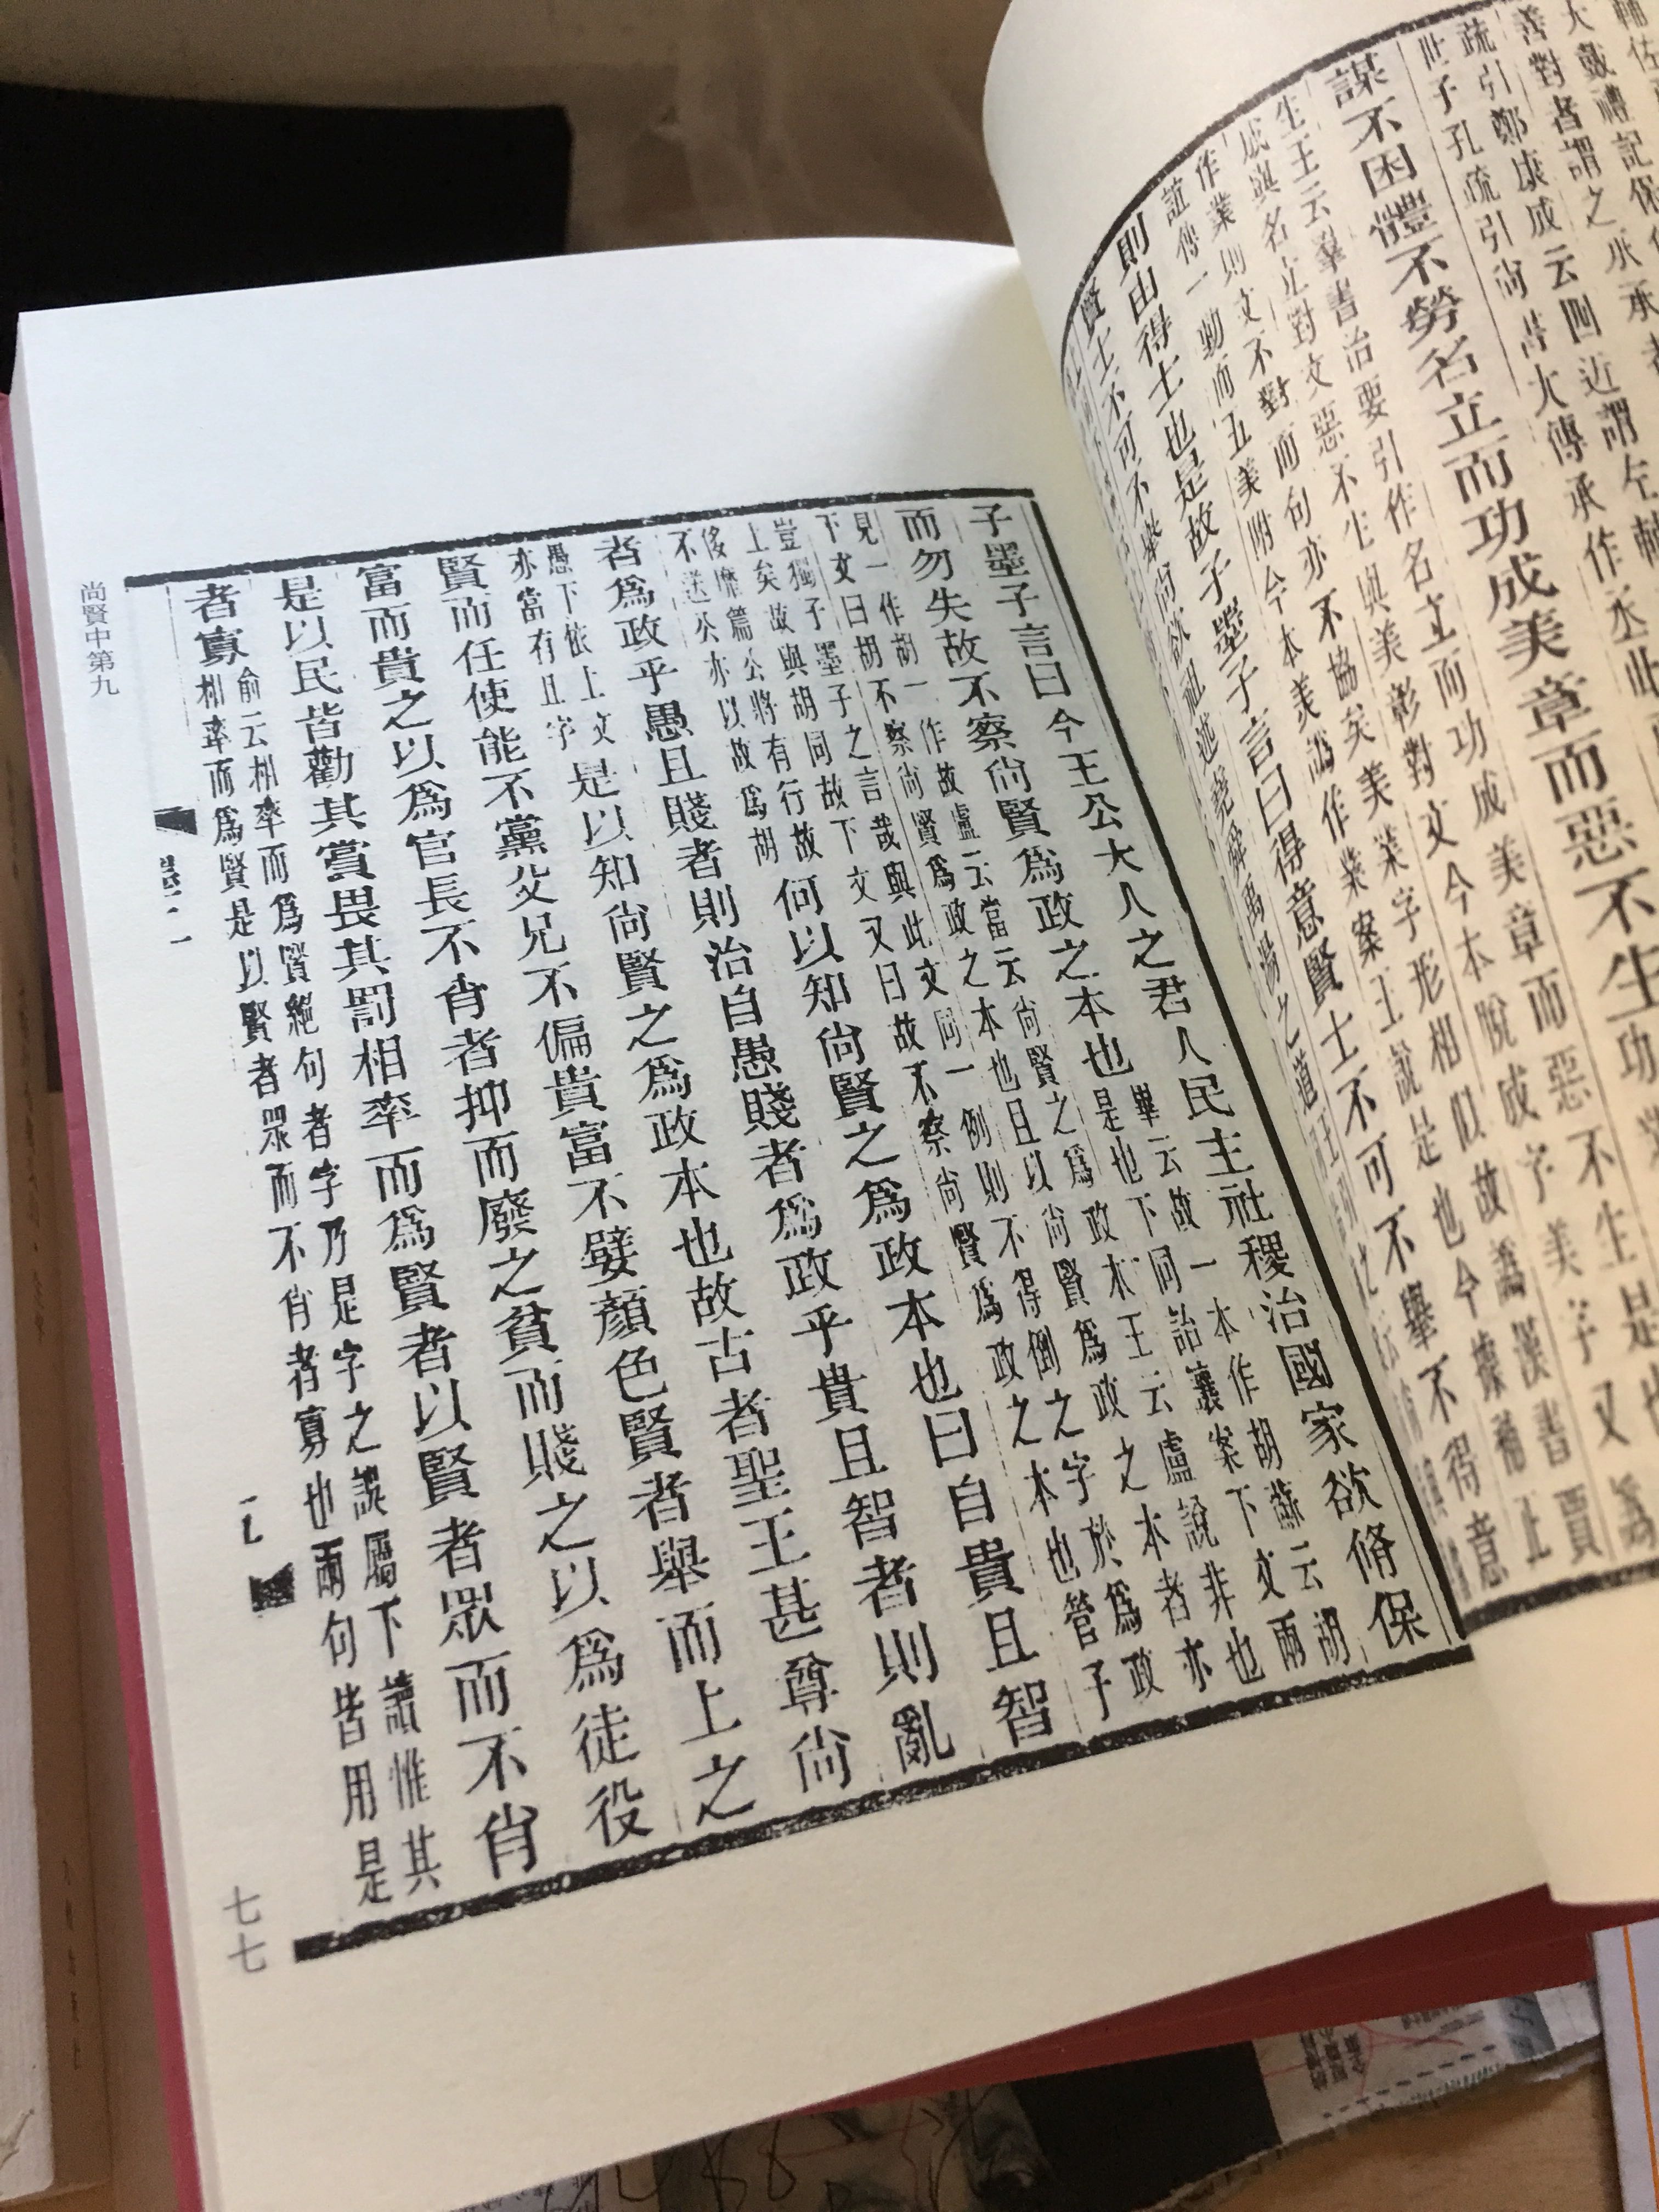 輔佐
大戴禮記保
善對者謂之承承者
疏引鄭康成云四近謂左輔
世子孔疏引尚書大傳承作丞此
謀不困體不勞名立而功成美章而惡不生
生王云羣書治要引作名立而功成美章而惡不生是也
成與名立對文惡不生與美彰對文今本脫成字美字又爲
作業則文不對而句亦不協矣美業字形相似故譌漢書賈
誼傳一動而五美附今本美譌作業案王說是也今據補止
則由得士也是故子墨子言曰得意賢士不可不舉不得意
賢士不可不舉尚欲祖述堯舜禹湯之道
子墨子言曰今王公大人之君人民主社稷治國家欲脩保
而勿失故不察尚賢爲政之本也
畢云故一本作胡蘇云胡
是也下同詒讓案下文兩
見一作胡一作故盧云當云尚賢之爲政本王云盧說非也
下文曰胡不察尚賢爲政之本也且以尚賢爲政之本者亦
豈獨子墨子之言哉與此文同一例則不得倒之字於爲政
上矣故與胡同故下文又曰故不察尚賢爲政之本也管子
侈靡篇公將有行故
不送公亦以故爲胡
何以知尚賢之爲政本也曰自貴且智
者爲政乎愚且賤者則治自愚賤者爲政乎貴且智者則亂
愚下依上文
亦當有且字
是以知尚賢之爲政本也故古者聖王甚尊尚
賢而任使能不黨父兄不偏貴富不嬖顏色賢者舉而上之
富而貴之以爲官長不肖者抑而廢之貧而賤之以爲徒役
是以民皆勸其賞畏其罰相率而爲賢者以賢者眾而不肖
者寡
俞云相率而爲賢絕句者字乃是字之誤屬下讀惟其
相率而爲賢是以賢者眾而不肖者寡也兩句皆用是
尚賢中第九
七七